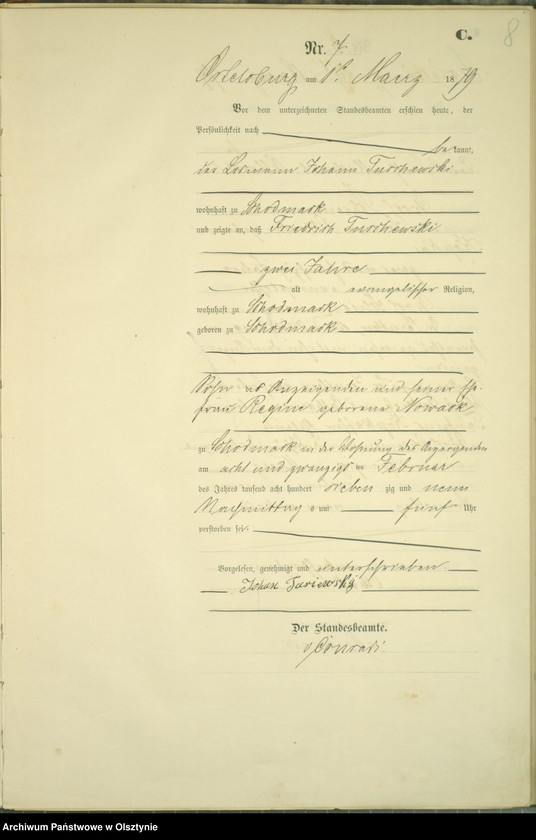 C.
8
Nr. 7.
Ortelsburg am 1ten Maerz 1879
Vor dem unterzeichneten Standesbeamten erschien heute, der
Persönlichkeit nach
bekannt,
der Losmann Johann Turchewski
wohnhaft zu Schodmack
und zeigte an, daß Friedrich Turchewski
zwei Jahre
alt evangelischer Religion,
wohnhaft zu Schodmack
geboren zu Schodmack
Sohn des Anzeigenden und seiner Ehe-
frau Regine geborene Nowack
zu Schodmack in der Wohnung des Anzeigenden
am acht und zwanzigsten Februar
des Jahres tausend acht hundert sieben zig und neun
Nachmittags um fünf Uhr
verstorben sei.
Vorgelesen, genehmigt und unterschrieben
Johan
Der Standesbeamte.
Conradi
Archiwum Państwowe w Olsztynie